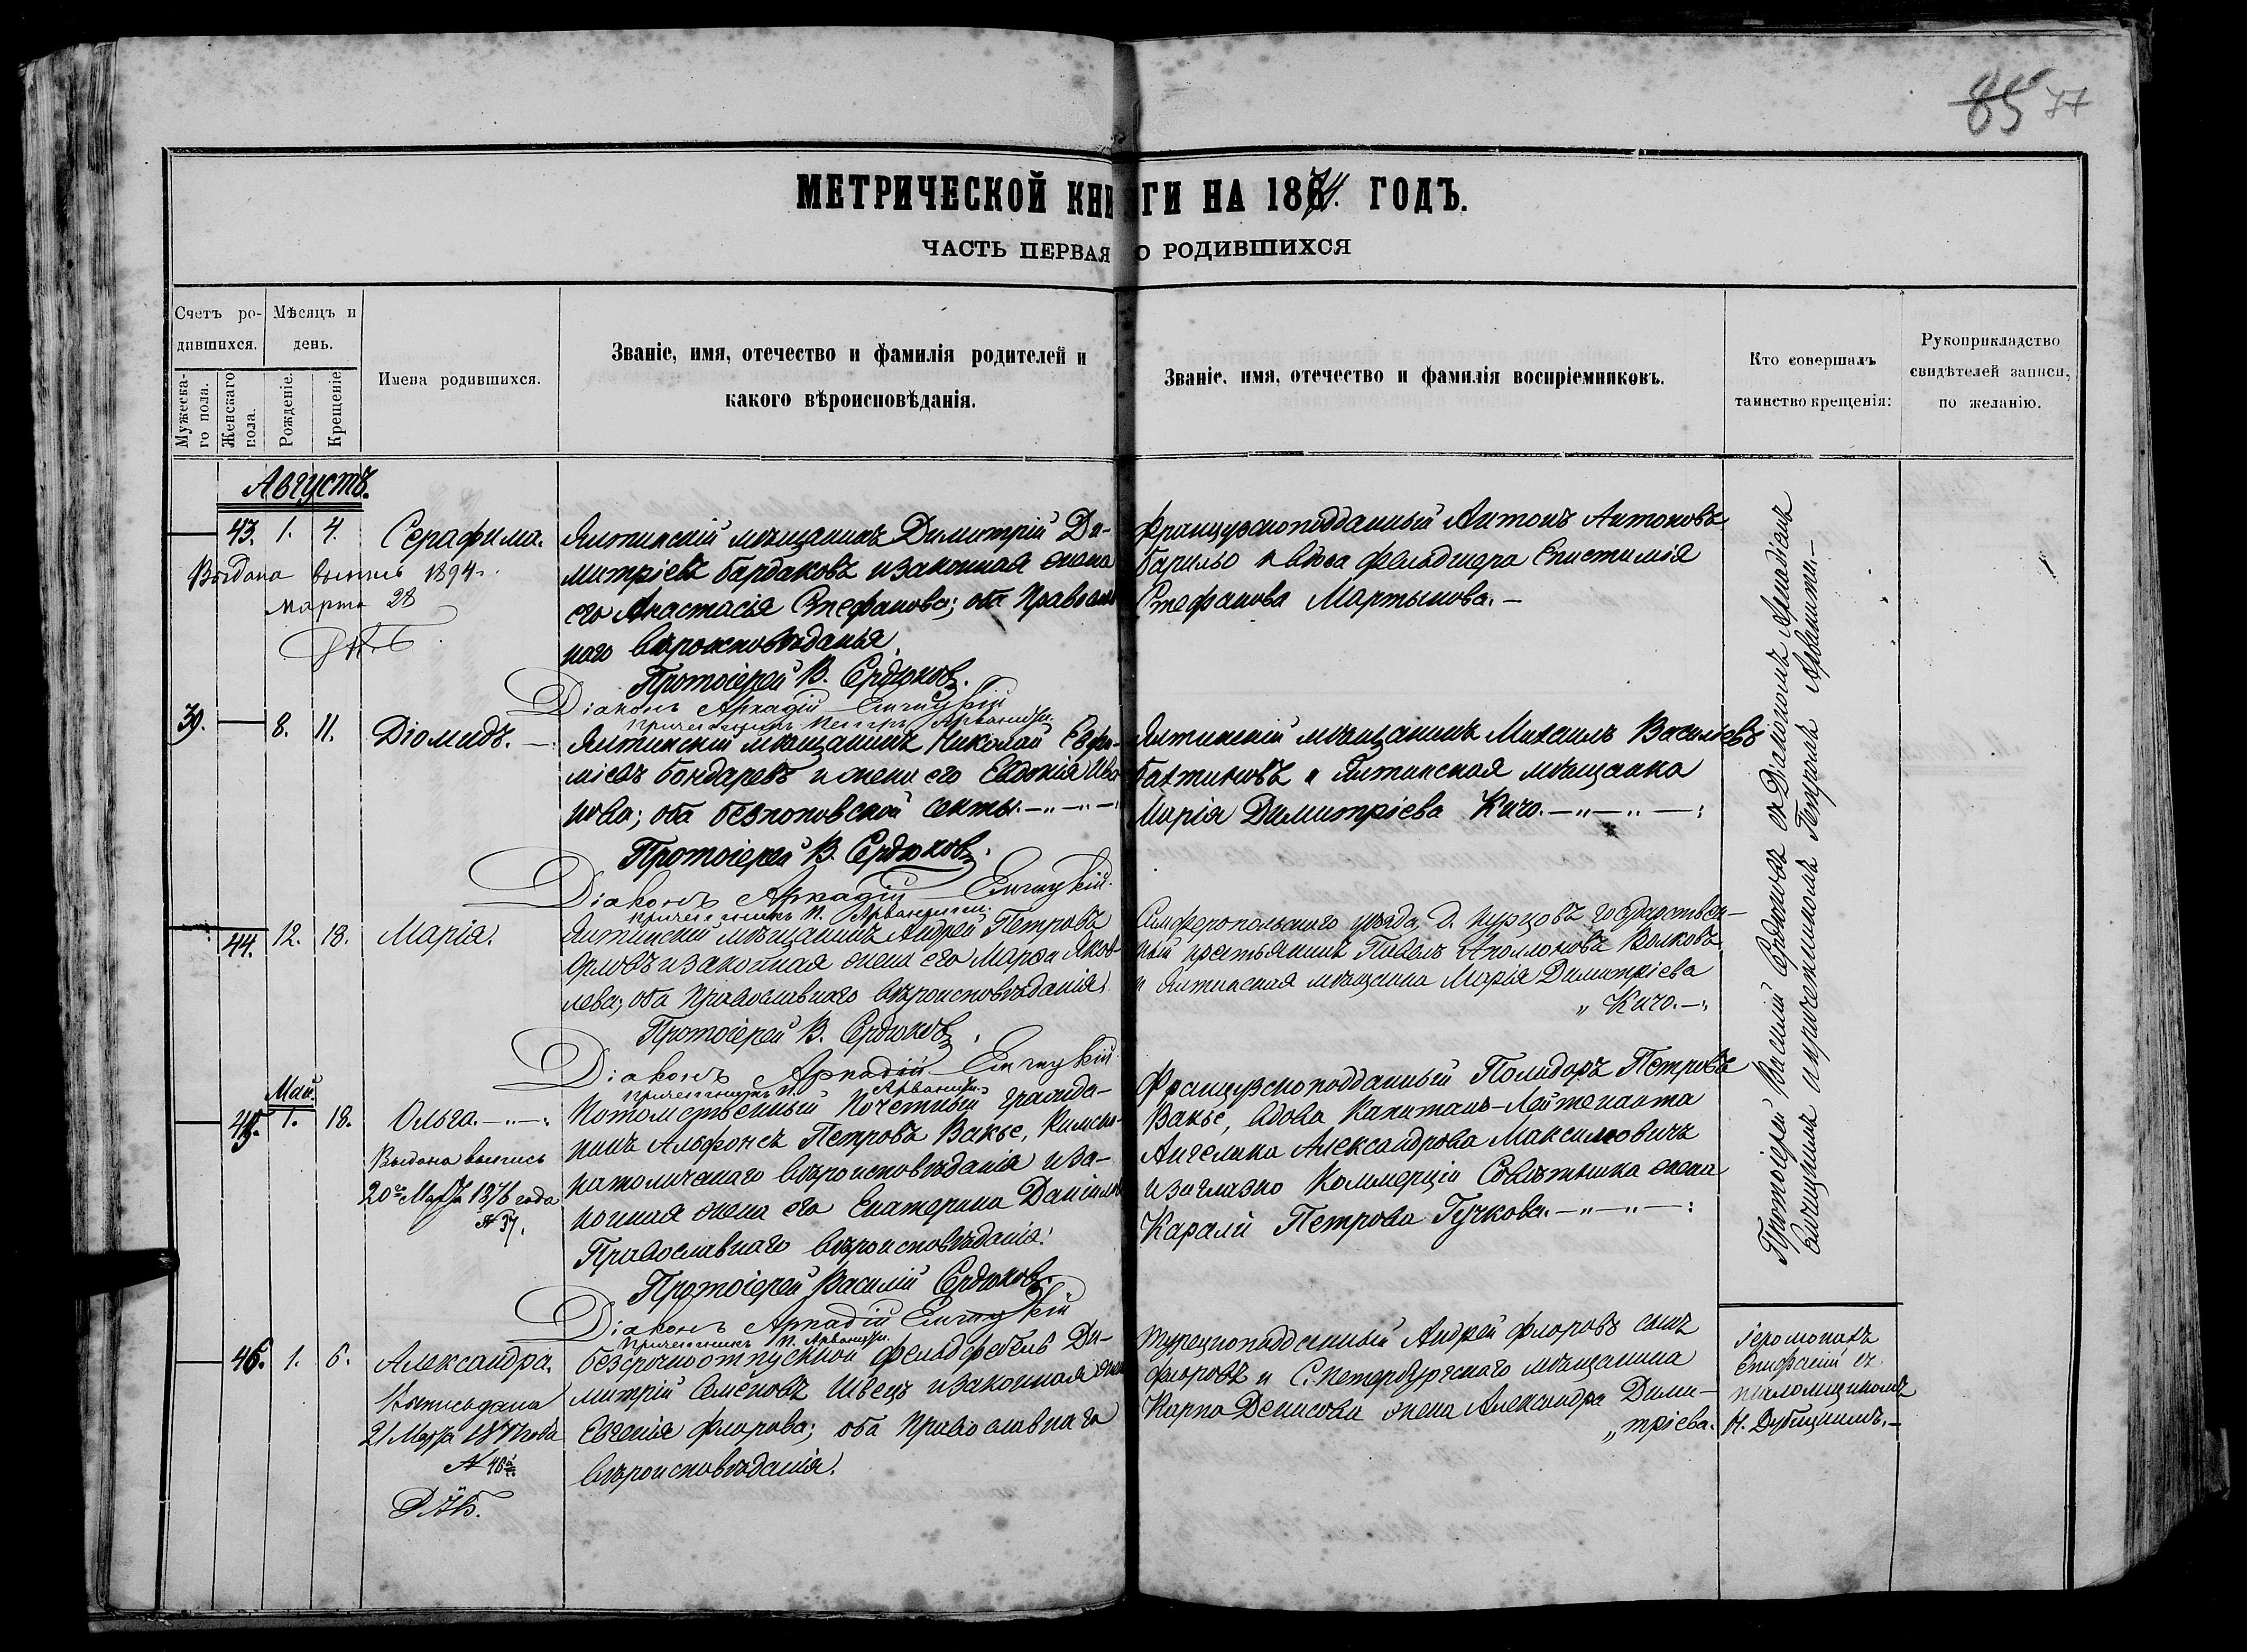 85 77
МЕТРИЧЕСКОЙ КНИГИ НА 1874. ГОДЪ.
ЧАСТЬ ПЕРВАЯ О РОДИВШИХСЯ
Счетъ ро-
дившихся.
Мужеска-
го пола.
Женскаго
пола.
Мѣсяцъ и
день.
Рожденіе.
Крещеніе
Имена родившихся.
Званіе, имя, отечество и фамилія родителей и
какого вѣроисповѣданія.
Званіе, имя, отечество и фамилія воспріемниковъ.
Кто совершалъ
таинство крещенія:
Рукоприкладство
свидѣтелей записи,
по желанію.
Августъ.
43. 1. 4. Серафима.
Выдана выпись 1894.
марта 28
Ялтинскій мѣщанинъ Димитрій Ди-
митріевъ Бардаковъ и законная жена
его Анастасія Стефанова; оба Православ
наго вѣроисповѣданія.
Протоіерей В. Сердюковъ.
Діаконъ Аркадій
Причетникъ Петръ
Французскоподданный Антонъ Антоновъ
Барильо и вдова фельдшера Епистимія
Стефанова Мартынова.-
39. 8. 11. Діомидъ.
Ялтинскій мѣщанинъ Николай Евфи-
міевъ Бондаревъ и жена его Евдокія Ива
нова; оба безпоповской секты.
Протоіерей В. Сердюковъ.
Діаконъ Аркадій
Причетникъ П.
Ялтинскій мѣщанинъ Михаилъ Васильевъ
и Ялтинская мѣщанка
Марія Димитріева Кичо.
44. 12. 18. Марія.
Ялтинскій мѣщанинъ Андрей Петровъ
Орловъ и законная жена его Марфа Яков
лева; оба Православнаго вѣроисповѣданія.
Протоіерей В. Сердюковъ.
Діаконъ Аркадій
Причетникъ П.
Симферопольскаго уѣзда, д. государствен-
ный крестьянинъ Павелъ Аполлоновъ Волковъ
и Ялтинская мѣщанка Марія Димитріева
„ Кичо.-
Май.
45. 1. 18. Ольга.
Выдана выпись
20го Марта 1876 года
№ 37.
Потомственный Почетный гражда-
нинъ Альфонсъ Петровъ Вакье, Римско-
католическаго вѣроисповѣданія и за-
конная жена его Екатерина Даніилова
Православнаго вѣроисповѣданія.
Протоіерей Василій Сердюковъ.
Діаконъ Аркадій
Причетникъ П.
Французскоподданный Полидоръ Петровъ
Вакье, вдова Капитанъ-Лейтенанта
Ангелина Александрова Максимовичъ
и заглазно Коммерціи Совѣтника жена
Карали Петрова Гучкова.
Протоіерей Василій Сердюковъ съ Діакономъ Аркадіемъ
и причетникомъ Петромъ
46. 1. 6. Александра.
Выпись дана
21 Марта 1877 года
№ 48
Безсрочноотпускной фельдфебель Ди-
митрій Семеновъ Швецъ и законная жена
Евгенія Флорова; оба Православнаго
вѣроисповѣданія.
Турецкоподданный Андрей Флоровъ сынъ
Флоровъ и С. Петербургскаго мѣщанина
Карпа Денисова жена Александра Дими-
„тріева.
Іеромонахъ
Епифаній съ
псаломщикомъ